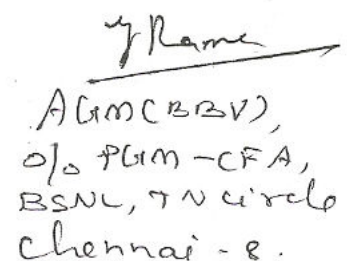 AGM(BBV),
O/o PGM-CFA,
BSNL, TN Circle
Chennai-8.